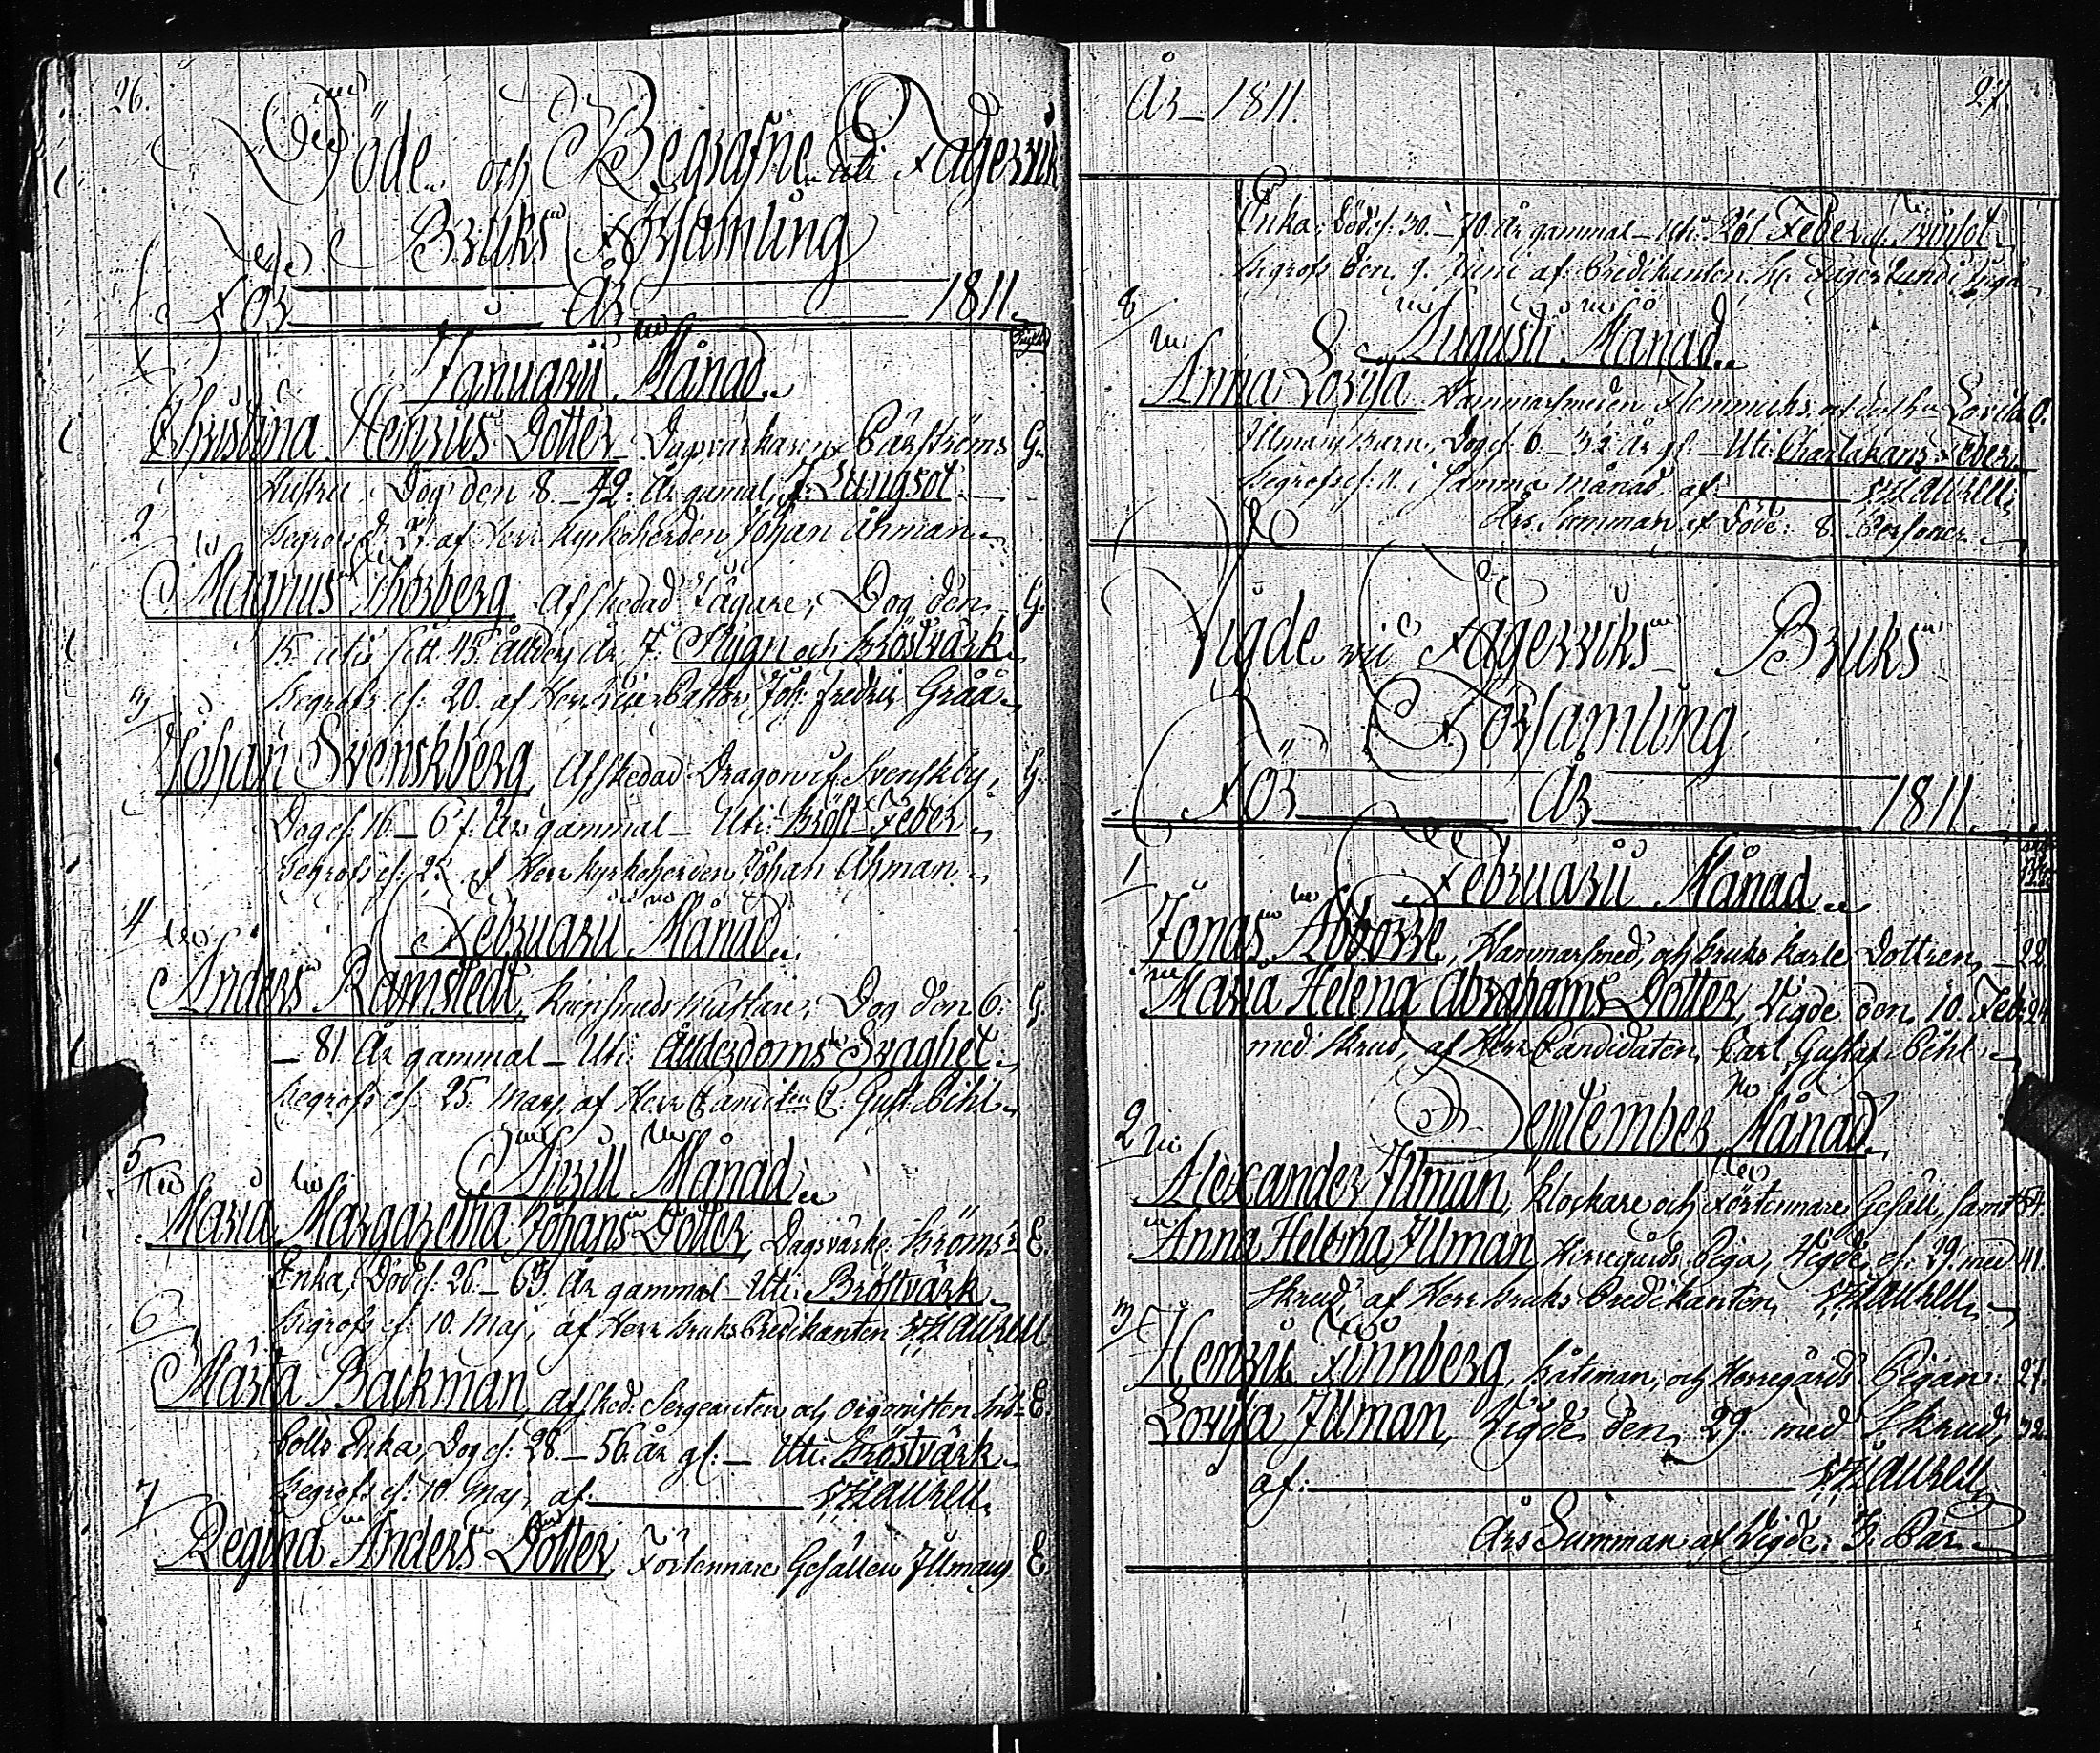 26.
Döde och Begrafne uti Fagervik
Bruks Församling
För År 1811.
Januarii Månad
1
Christina Henrics Dotter Dagsvärkaren Bärströms G.
Hustru. Dog den 8. – 42. År gamal, f. Lungsot
2
Begrofs d. af Herr Kyrkoherden Johan Åhman
Magnus Thorberg Afskedad Jägare, Dog den G.
15 uti sitt 45. Ålders År, f. Stygn och Bröstvärk
3
Begrofs d: 20. af Herr Pastor, Joh: Fredric Gråå
Johan Svenskberg Afskedad Dragon if. Svenskby, G.
Dog d. 16 – 67. År gammal – Uti: Bröst Feber
Begrofs d: af Herr Kyrkoherden Johan Åhman
4
Februarii Månad
Anders Ramstedt Knipsmeds Mästare, Dog den 6: G.
– 81 År gammal – Uti Ålderdoms Svaghet
Begrofs d: 25. Mars, af Herr Candidaten C. Gust. Pihl
Aprill Månad
5
Maria Margaretha Johans Dotter Dagsvärk: Ströms E.
Enka, Död d: 26 – 65 År gammal – Uti: Bröstvärk
6
Begrofs d: 10. Maj, af Herr Bruks Predikanten Laurell
Maria Backman afsked: Sergeanten och Organisten E.
Enka, Dog d: 28. – 56 år gl: – Uti Bröstvärk
7
Begrofs d: 10. Maj, af: Laurell
Regina Anders Dotter Förtennare Gesällen Illmans E.
År 1811. 27.
Enka, Död d: 30. – 70. År gammal – Uti: Röt Feber
Begrofs den 9. Junii af Predikanten H. Fagerlund i Ingå
8
Augusti Månad
Anna Lovisa Hammarsmeden Flemmichs och dess hu Lovisa O.
Illmans Barn, Dog d: 6. – 3½ År gl: – Uti Charlakans Feber
Begrofs d: 11. i samma Månad, af Laurell
Års Summan af Döde: 8. Personer
Vigde vid Fagerviks Bruks
Församling
För År 1811
Februarii Månad
1
Jonas Abborre, Hammarsmed, och Bruks Karls Dottren, 22
Maria Helena Abrahams Dotter, Vigde den 10. Feb: 24
med Skrud, af Herr Candidaten Carl Gustaf Pihl
September Månad
2
Alexander Illman, Klockare och Förtennare Gesäll, samt 54.
Anna Helena Illman Herregårds Piga, Vigde, d: 29. med 41.
Skrud, af Herr Bruks Predikanten, Laurell
3
Henric Finnberg, Båtsman, och Herregårds Pigan: 27.
Lovisa Illman, Vigde den 29. med Skrud, 32.
af: Laurell
Års Summan af Vigde: 3. Par